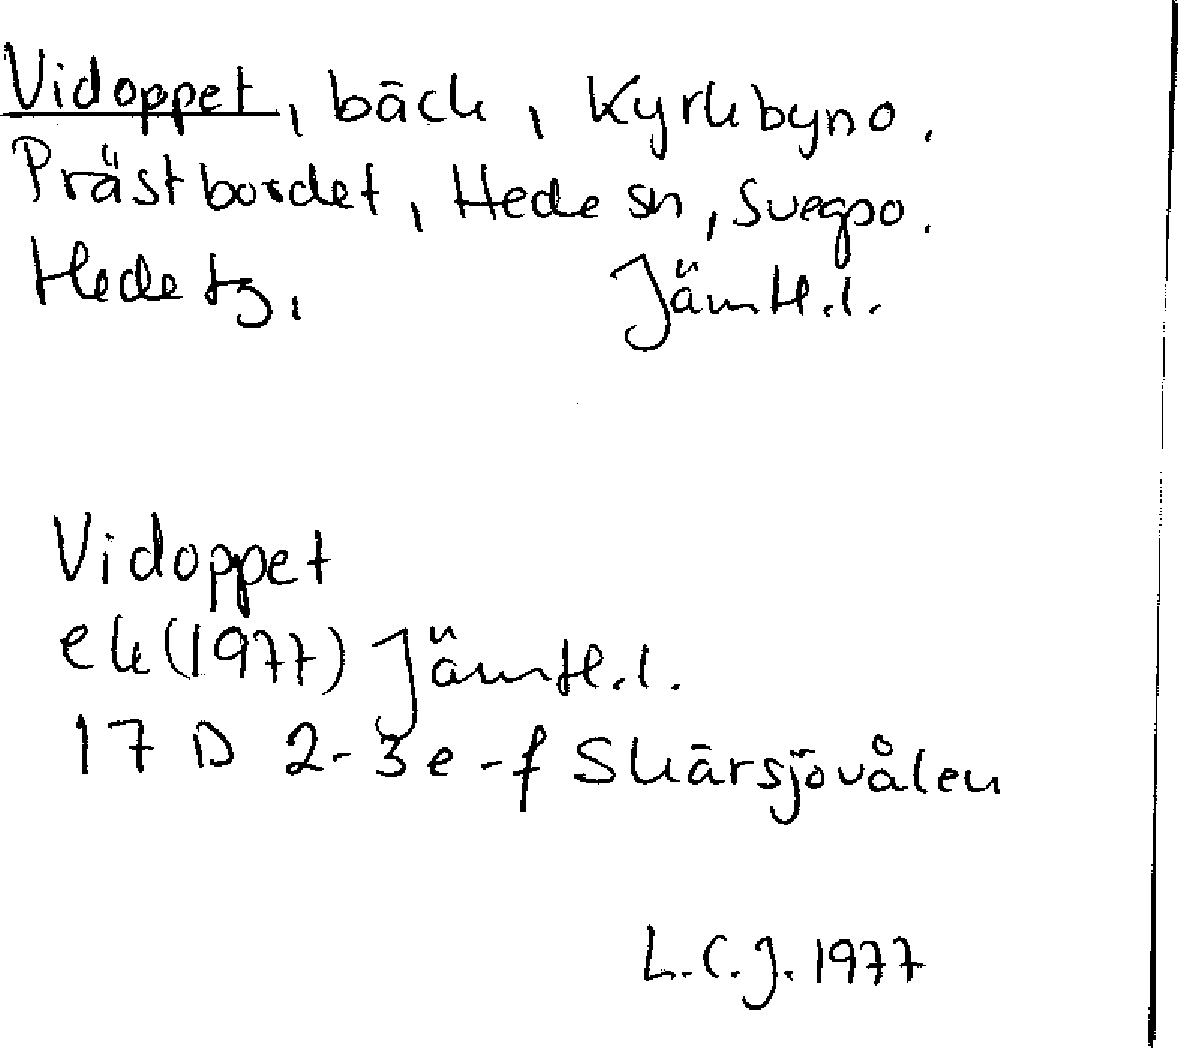 Vidoppet, bäck, Kyrkbyn o.
Prästbordet, Hede sn, Svegs po.
Hede tg, Jämtl.l.
Vidoppet
ek (1977) Jämtl.l.
17 D 2-3 e-f Skärsjövålen
L.C.J. 1977